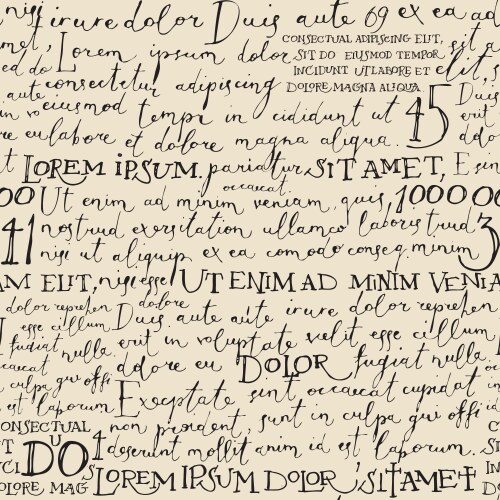 irure dolor Duis aute 69 ex ea
CONSECTUAL ADIPISCING ELIT,
Lorem ipsum dolor SIT DO EIUSMOD TEMPOR
INCIDUNT UTLABORE ET elit, s
consectetur adipiscing DOLORE MAGNA ALIQUA 45 Duis
aute
eiusmod tempr in cididunt ut erit
re eulabore et dolore magna aliqua.
LOREM IPSUM. pariatur SIT AMET, E sin
occaecat
00 Ut enim ad minim veniam, quis, 10000
41 nostrud exersitation ullamco laboris trud 3
nisi ut aliquip ex ea comodo conseq. minim
AM ELIT, nisi esse UT ENIM AD MINIM VENIA
dolor reprehen dolore
esse cillum Duis aute aute irure dolor reprehen
fugiat nulla erit in voluptate velit esse cillum
caecat dolore eu DOLOR fugiat nulla
culpa qui offi Exceptate sint occaecat cupidat
est laborum
CONSECTUAL non proident, sunt in culpa qui offi
U
DO 4 deserunt mollit anim id est laborum.
DOLORE MAG LOREM IPSUM DOLOR, SITAMET